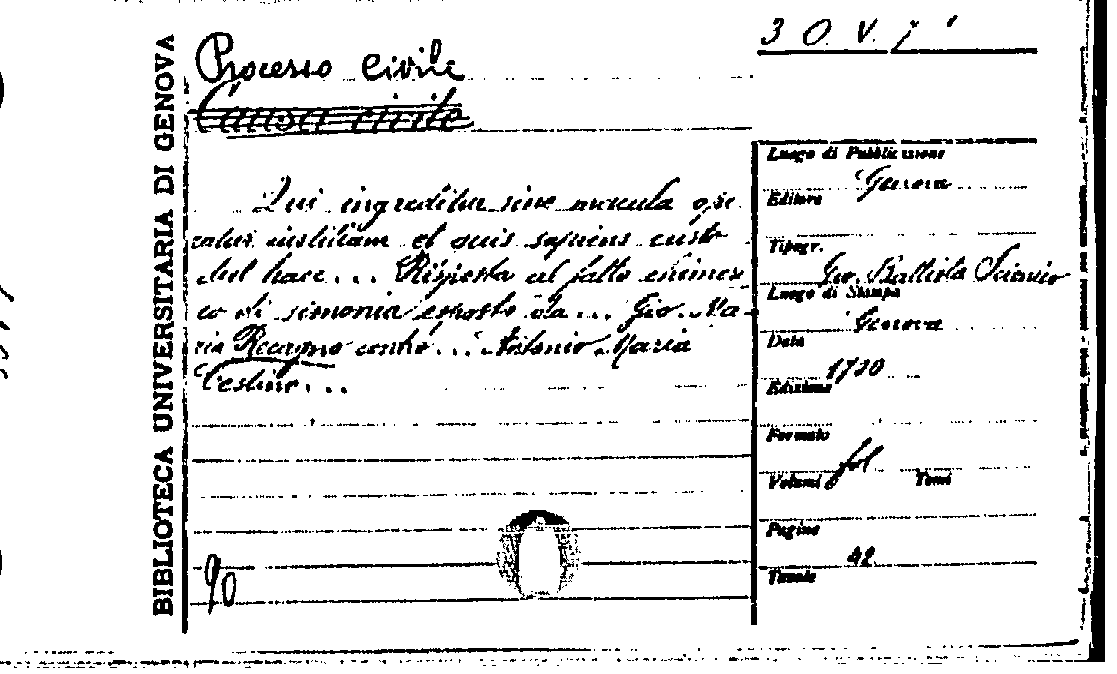 BIBLIOTECA UNIVERSITARIA DI GENOVA
3 O. V. 7
Processo civile
Causa civile
Qui ingreditur sine macula ope
ratur iustitiam et quis sapiens custo
diet haec ... Risposta al fatto chimeri
co di simonia esposto da ... Gio. Ma-
ria Recagno contro ... Antonio Maria
Cestino ...
90
Luogo di Pubblicazione
Genova
Editore
Tipogr.
Gio. Battista Scionico
Luogo di Stampa
Genova
Data
1720
Edizione
Formato
fol
Volumi Tomi
Pagine
42
Tavole